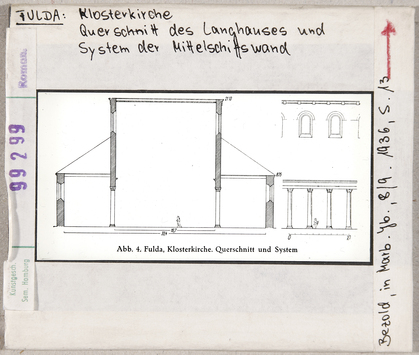 FULDA: Klosterkirche
Querschnitt des Langhauses und
System der Mittelschiffswand
Roman.
99299
Kunstgesch.
Sem. Hamburg
Abb. 4. Fulda, Klosterkirche. Querschnitt und System
Bezold, in Marb. Jb., 8/9. 1936, S. 13